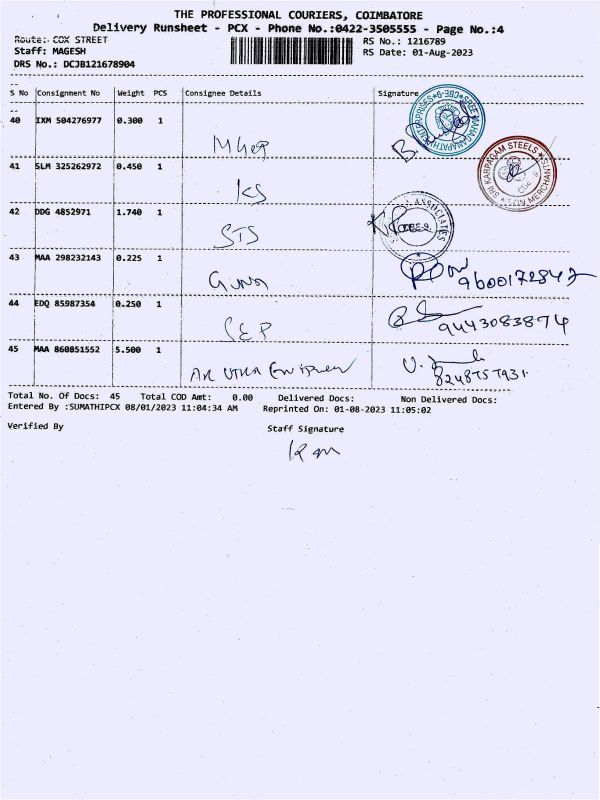 THE PROFESSIONAL COURIERS, COIMBATORE
Delivery Runsheet - PCX - Phone No.:0422-3505555 - Page No.:4
Route: COX STREET
RS No.: 1216789
Staff: MAGESH
RS Date: 01-Aug-2023
DRS No.: DCJB121678904
S No Consignment No Weight PCS Consignee Details Signature
40 IXM 504276977 0.300 1
41 SLM 325262972 0.450 1 KS
SRI KARPAGAM STEELS
42 DDG 4852971 1.740 1 STS
ASSOCIATES
43 MAA 298232143 0.225 1 Guna
44 EDQ 85987354 0.250 1 SEP 9443083874
45 MAA 860851552 5.500 1
Total No. Of Docs: 45 Total COD Amt: 0.00 Delivered Docs: Non Delivered Docs:
Entered By :SUMATHIPCX 08/01/2023 11:04:34 AM Reprinted On: 01-08-2023 11:05:02
Verified By Staff Signature